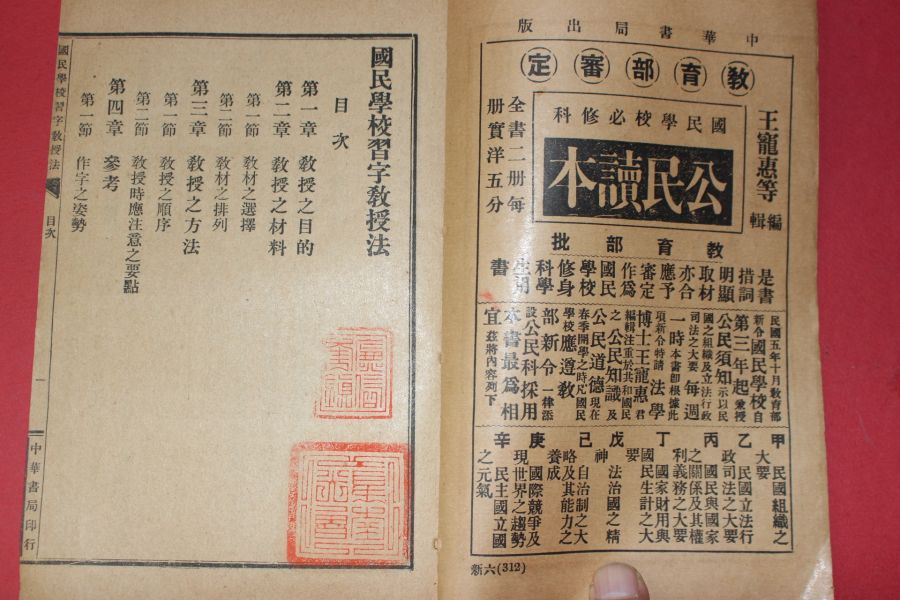 中華書局出版
教育部審定
王寵惠等編輯
國民學校必修科
公民讀本
全書二册每
册實洋五分
教育部批
是書
措詞
明顯
取材
亦合
應予
審定
作爲
國民
學校
修身
科學
生用
書
民國五年十月教育部
新令國民學校自
第三年起兼授
公民須知示以民
國之組織及立法行政
司法之大要每週
一時本書卽根據此
項新令特請法學
博士王寵惠君
編輯注重於共和國民
之公民知識及
公民道德現在
春季開學之時凡國民
學校應遵敎
部新令一律添
設公民科採用
本書最爲相
宜茲將內容列下
甲 民國組織之
大要
乙 民國立法行
政司法之大要
丙 國民與國家
之關係及其權
利義務之大要
丁 國家財用與
國民生計之大
要
戊 法治國之精
神
己 自治制之大
略及其能力之
養成
庚 國際競爭及
現世界之趨勢
辛 民主國立國
之元氣
新六(312)
國民學校習字敎授法
目次
第一章 敎授之目的
第二章 敎授之材料
第一節 敎材之選擇
第二節 敎材之排列
第三章 敎授之方法
第一節 敎授之順序
第二節 敎授時應注意之要點
第四章 參考
第一節 作字之姿勢
國民學校習字敎授法 目次
一
中華書局印行